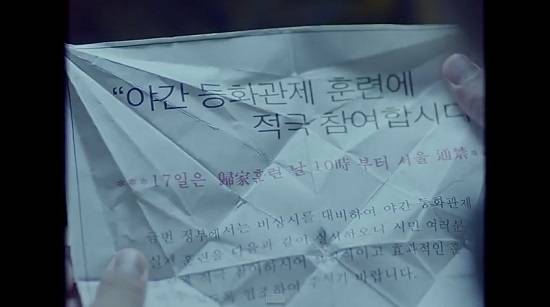 “야간 등화관제 훈련에
적극 참여합시다
***17일은 歸家훈련 날 10時부터 서울 通禁*
금번 정부에서는 비상시를 대비하여 야간 등화관제
실시 훈련을 다음과 같이 실시하오니 시민 여러분
적극 참여하시어 이고 효과적인
협조하여 주시기 바랍니다.